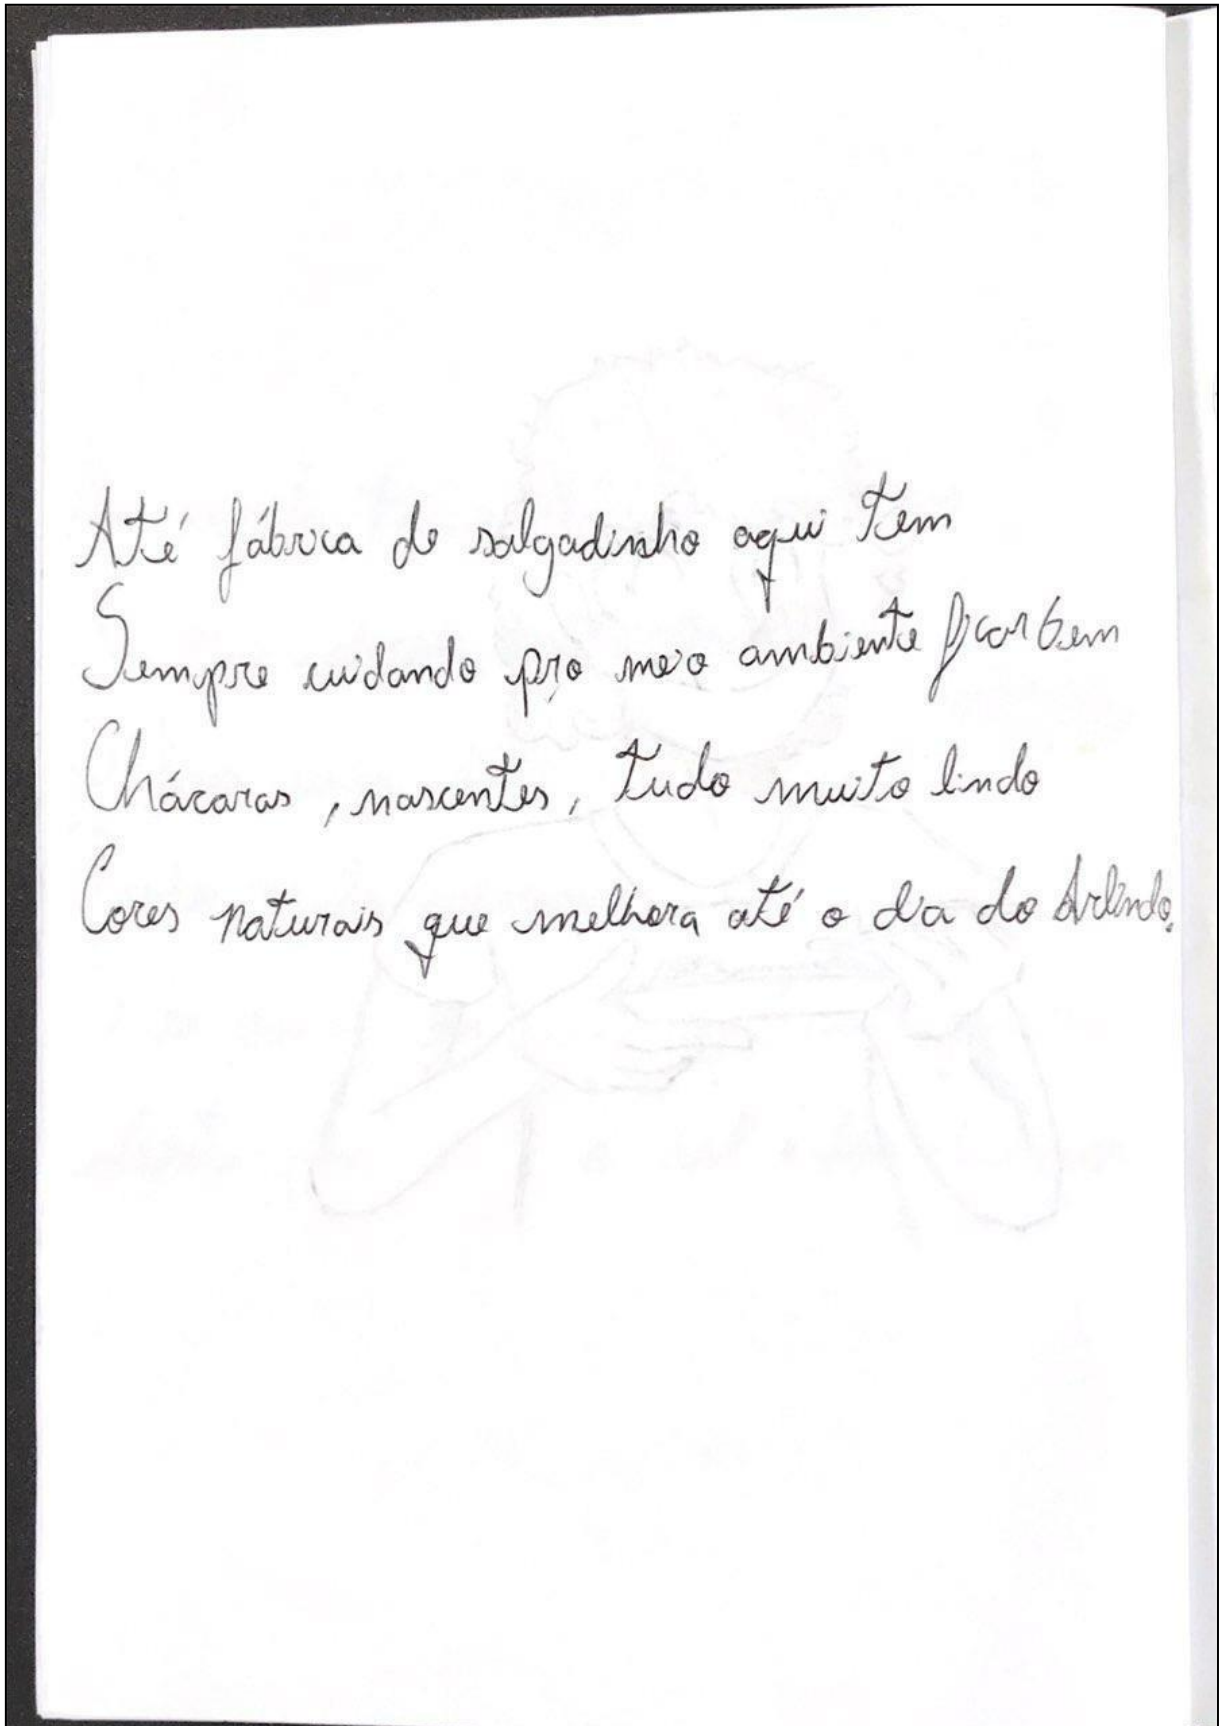 Até fábrica de salgadinho aqui tem
Sempre cuidando pro meio ambiente ficar bem
Chácaras, nascentes, tudo muito lindo
Cores naturais que melhora até o dia do Arlindo.